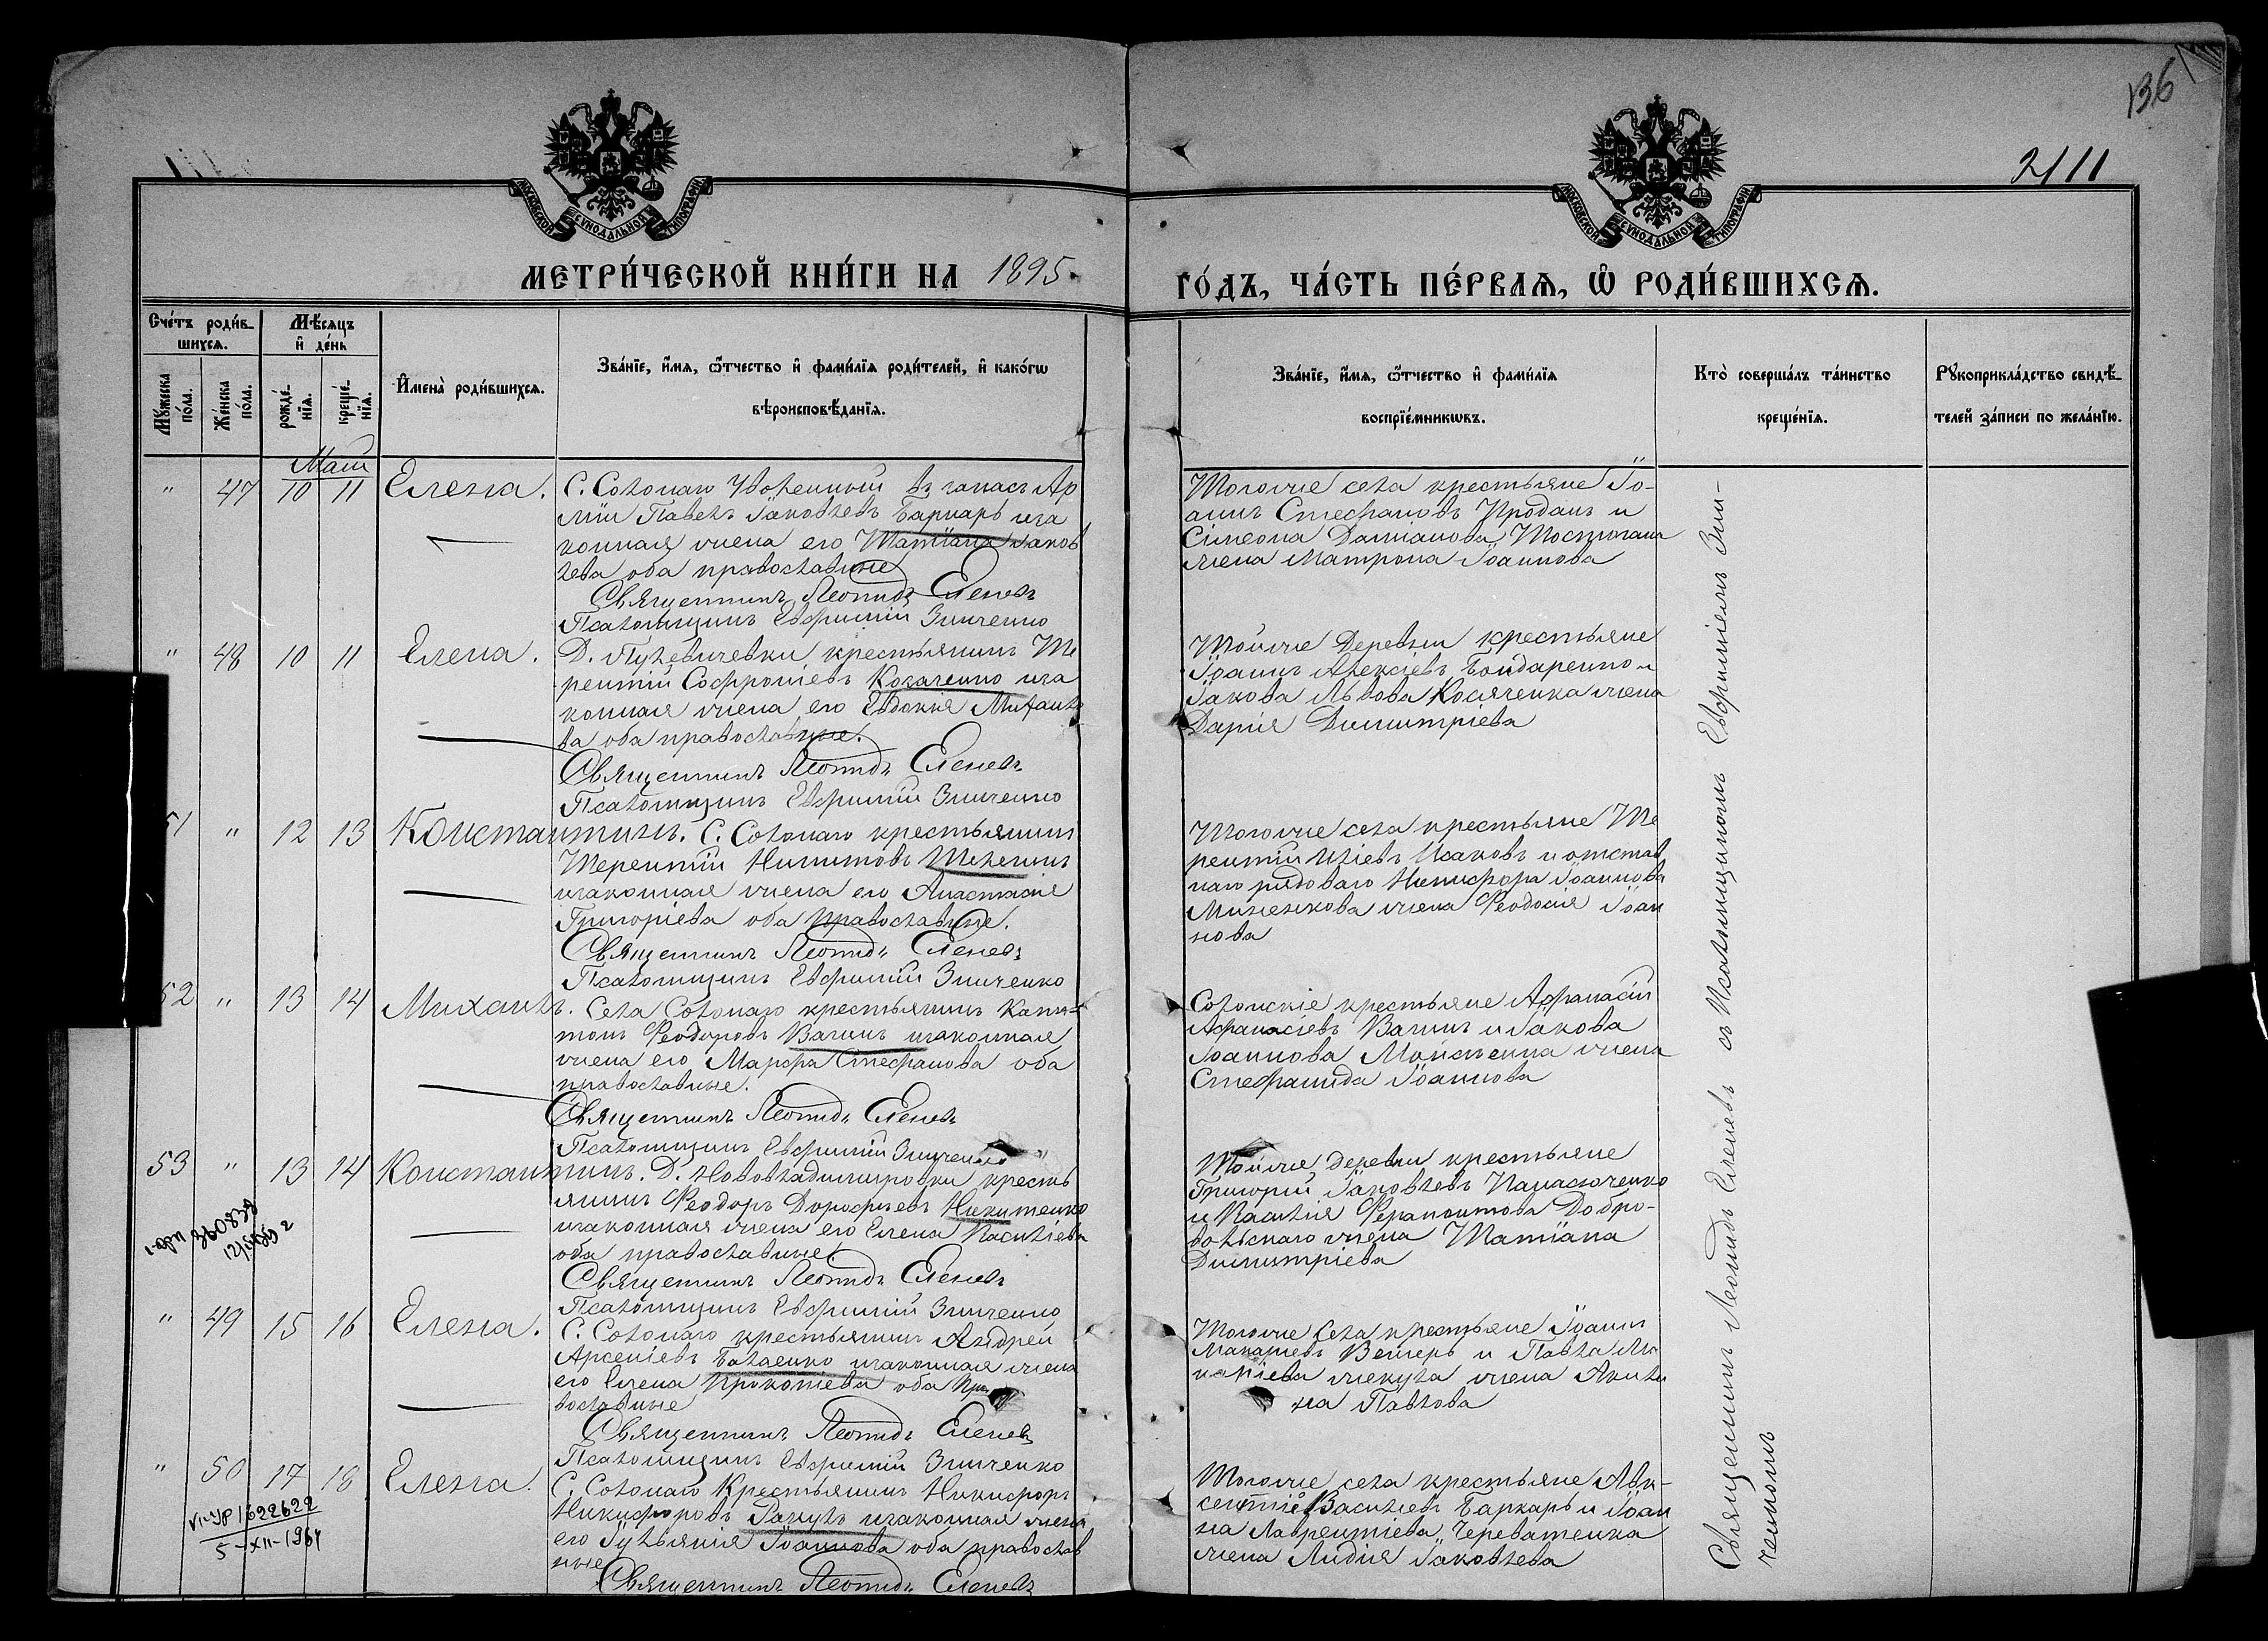 136
2111
МОСКОВСКОЙ СѴНОДАЛЬНОЙ ТИПОГРАФІИ
МОСКОВСКОЙ СѴНОДАЛЬНОЙ ТИПОГРАФІИ
МЕТРИ́ЧЕСКОЙ КНИ́ГИ НА 1895.
ГО́ДЪ, ЧА́СТЬ ПЕ́РВАѦ, Ѡ РОДИ́ВШИХСѦ.
Сче́тъ роди́в-
шихсѧ.
Мꙋжеска по́ла.
Же́нска по́ла.
Мѣ́сѧцъ
и҆ де́нь
рожде́-
нїѧ.
креще́-
нїѧ.
И҆мена̀ роди́вшихсѧ.
Зва́нїе, и҆́мѧ, ѻ҆́тчество и҆ фами́лїѧ роди́телей, и҆ како́гѡ
вѣроисповѣ́данїѧ.
Зва́нїе, и҆́мѧ, ѻ҆́тчество и҆ фами́лїѧ
воспрїе́мникѡвъ.
Кто̀ соверша́лъ та́инство
креще́нїѧ.
Рꙋкоприкла́дство свидѣ́-
телей за́писи по жела́нїю.
Маій
" 47 10 11 Елена. С. Солонаго Уволенный въ запасъ Ар
міи Павелъ Іаковлевъ Баркаръ иза
конная жена его Татіана Іаков
лева оба православные
Священникъ Леонидъ Еленевъ
Псаломщикъ Евфимій Зинченко
Тогоже села крестьяне Іо-
аннъ Стефановъ Проданъ и
Симеона Даміанова
жена Матрона Іоаннова
" 48 10 11 Елена. Д. крестьянинъ Те
рентій Софроніевъ Козаченко иза
конная жена его Евдокія Михаило
ва оба православные.
Священникъ Леонидъ Еленевъ
Псаломщикъ Евфимій Зинченко
Тойже Деревни крестьяне
Іоаннъ Алексіевъ Бондаренко и
Іакова Львова Косяченка жена
Дарія Димитріева
51 " 12 13 Константинъ. С. Солонаго крестьянинъ
Терентій Никитовъ
изаконная жена его Анастасія
Григоріева оба православные.
Священникъ Леонидъ Еленевъ
Псаломщикъ Евфимій Зинченко
Тогоже села крестьяне Те
рентій Иліевъ Исаковъ и отстав
наго рядоваго Никифора Іоаннова
Миненкова жена Феодосія Іоан
нова
52 " 13 14 Михаилъ. Села Солонаго крестьянинъ Капи-
тонъ Феодоровъ Вагинъ изаконная
жена его Марфа Стефанова оба
православные.
Священникъ Леонидъ Еленевъ
Псаломщикъ Евфимій Зинченко
Солонскіе крестьяне Афанасій
Афанасіевъ Вагинъ и Іакова
Іоаннова жена
Стефанида Іоаннова
53 " 13 14 Константинъ. Д. Нововладимировки кресть
янинъ Феодоръ Дорофеевъ Никитенко
изаконная жена его Елена Василіева
оба православные.
Священникъ Леонидъ Еленевъ
Псаломщикъ Евфимій Зинченко
360838
Тойже Деревни крестьяне
Григорій Іаковлевъ Панасюченко
и Василія Ферапонтова Добро-
вольскаго жена Татіана
Димитріева
" 49 15 16 Елена. С. Солонаго крестьянинъ Андрей
Арсеніевъ изаконная жена
его Елена Прокопіева оба пра
вославные
Священникъ Леонидъ Еленевъ
Псаломщикъ Евфимій Зинченко
Тогоже Села крестьяне Іоаннъ
Макаріевъ Вегеръ и Павла Ма
каріева жена Акили
на Павлова
" 50 17 18 Елена. С. Солонаго Крестьянинъ Никифоръ
Никифоровъ изаконная жена
его Іуліанія Іоаннова оба православ
ные
Священникъ Леонидъ Еленевъ
1622622
5-XII-1961
Тогоже села крестьяне Авк-
сентій Василіевъ Баркаръ и Іоан
на Лаврентіева Череватенка
жена Лидія Іаковлева
Священникъ Леонидъ Еленевъ съ Псаломщикомъ Евфиміемъ Зин-
ченкомъ